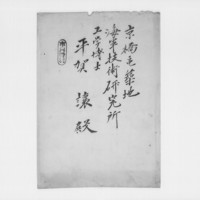 京橋区築地
海軍技術研究所
工学博士
平賀 譲 殿